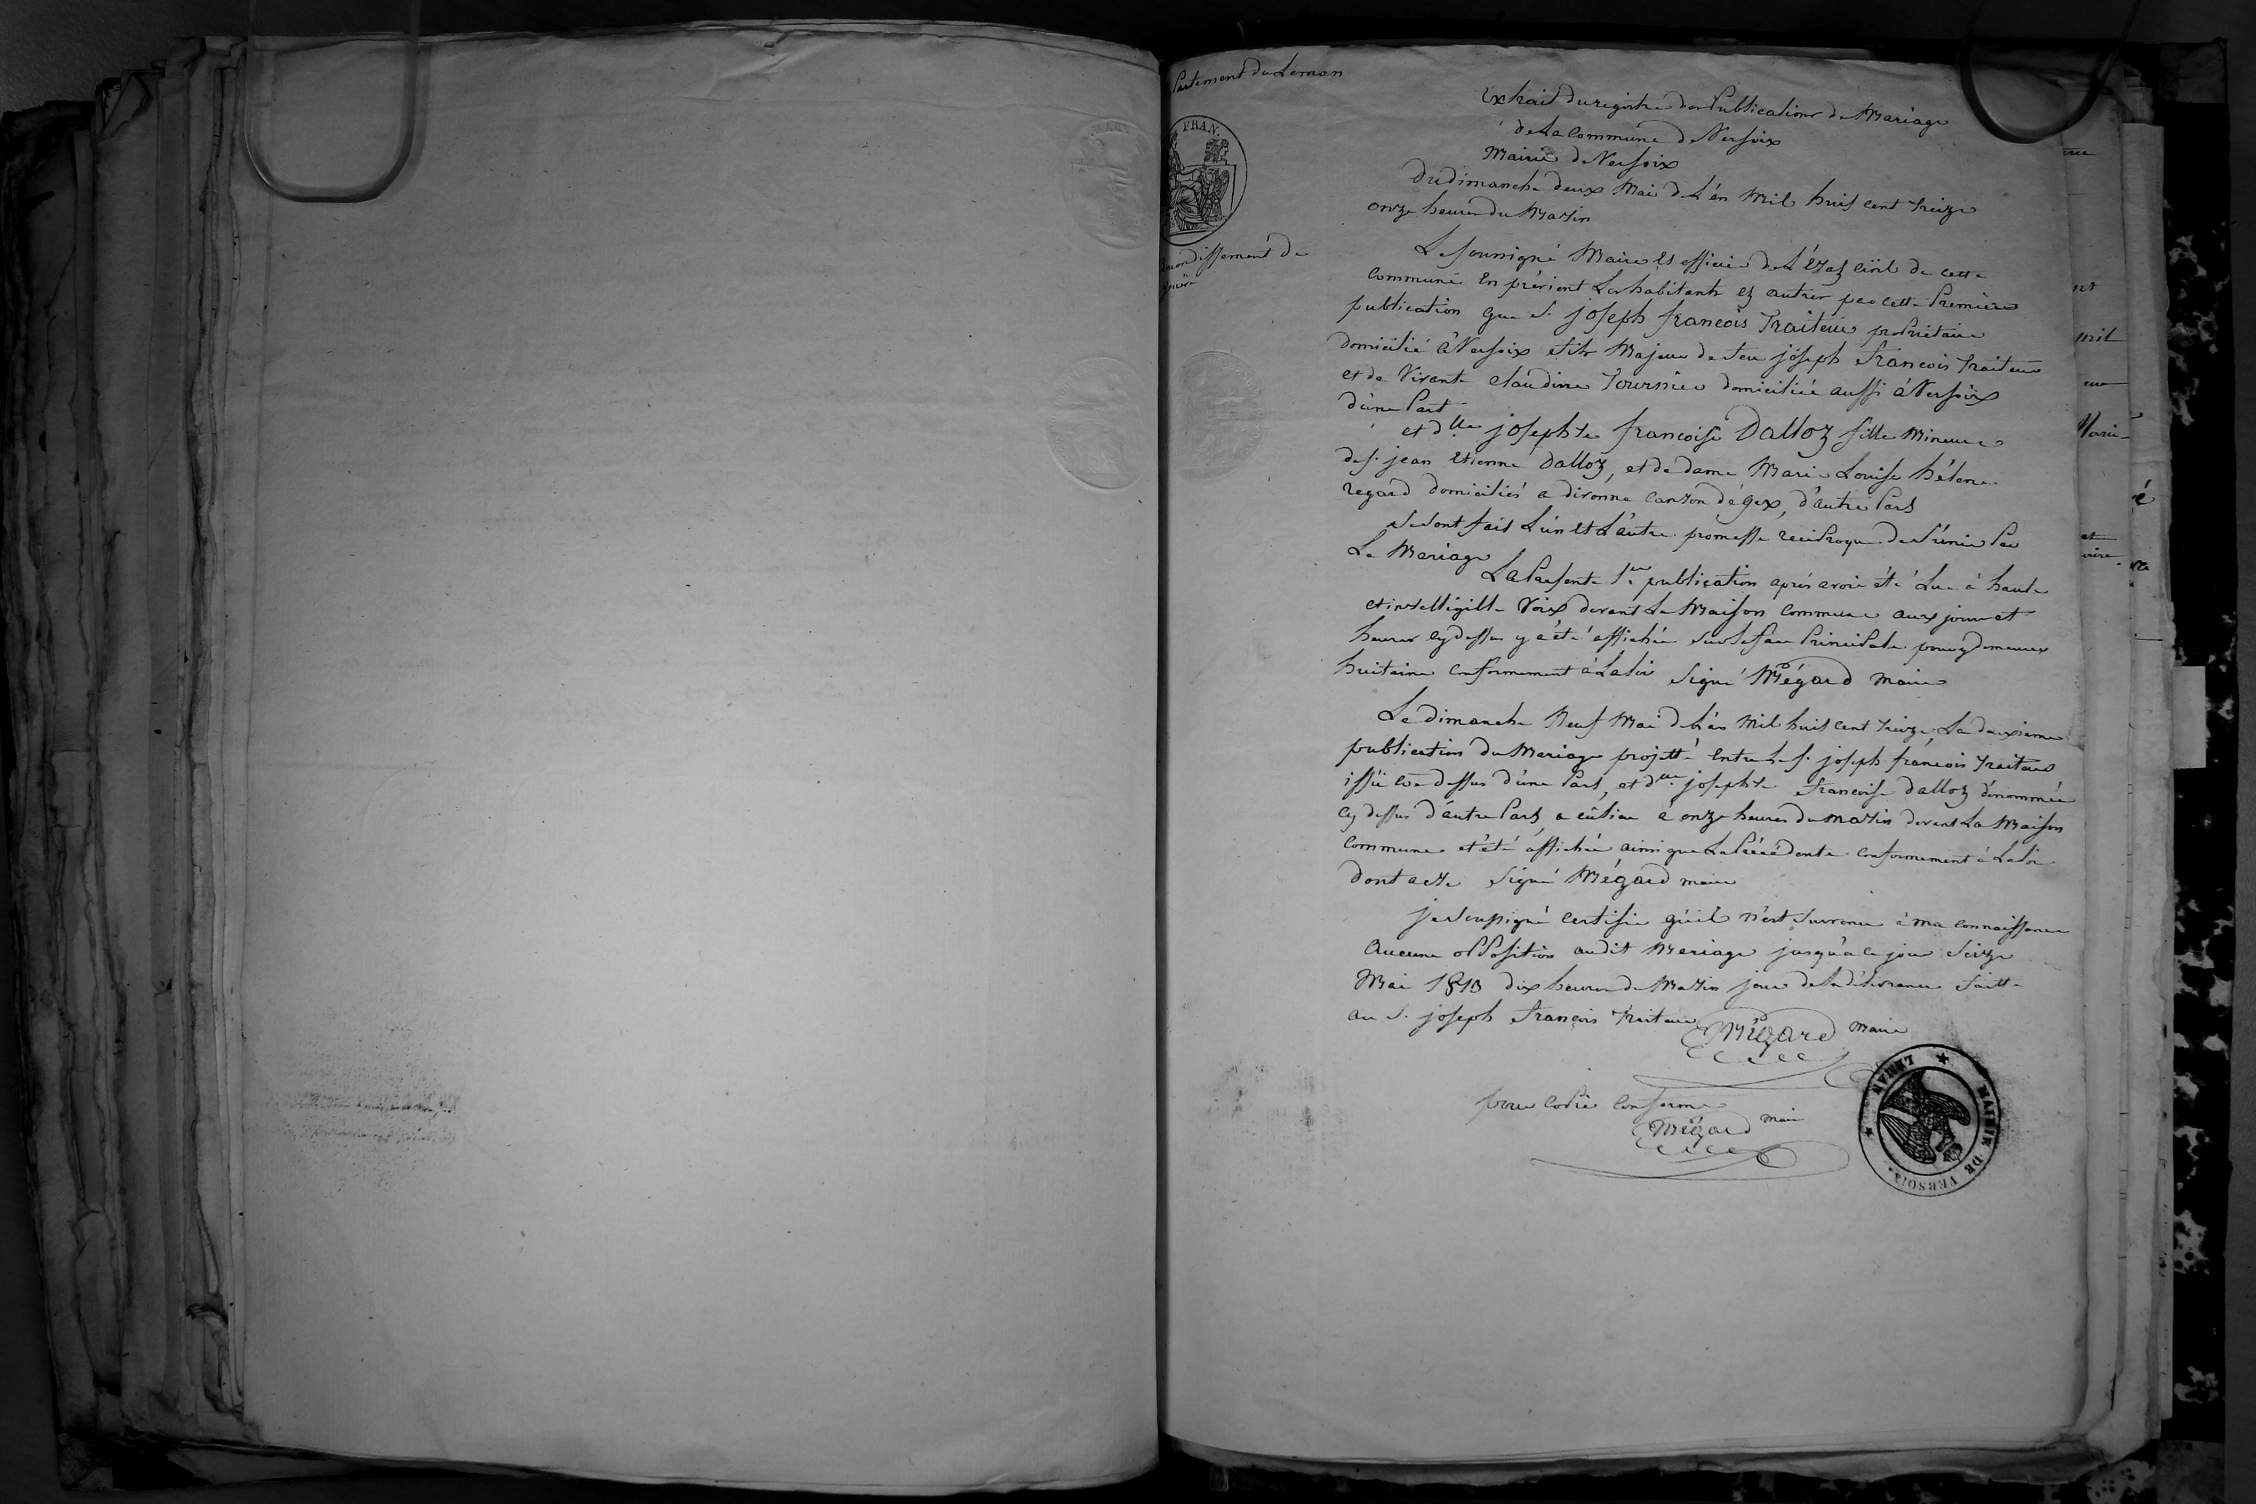 partement du Leman
FRAN.
arrondissement de
Extrait du registre des Publications de Mariage
de La Commune de Versoix
Mairie de Versoix
Du dimanche deux Mai de L'an Mil huit cent treize
onze heures du Matin
Le soussigné Maire et officier de L'état civil de cette
Commune En prévient Les habitants et autres par cette Première
publication que S. joseph françois Traiteur propriétaire
domicilié à Versoix fils Majeur de feu joseph François Traiteur
et de Vivante claudine Tournier domiciliée aussi à Versoix
d'une Part
et dlle josephte francoise Dalloz fille Mineure
de S. jean Etienne Dalloz, et de dame Marie Louise hélene
regard domiciliés a divonne canton de gex, d'autre Part
Se sont fait L'un et L'autre promesse reciproque de S'unir Par
Le Mariage
La Presente 1ere publication après avoir été Lue à haute
et intelligible Voix devant La Maison Commune aux jour et
heures cy dessus y a été affichée sur la face Principale pour y demeurer
huitaine conformement à La Loi Signé Mégard maire
Le dimanche Neuf Mai de L'an Mil huit cent treize, La deuxieme
publication du Mariage projetté Entre Le S. joseph françois Traiteur
d'une Part, et dlle josephte francoise Dalloz dénommée
cy dessus d'autre Part a eû lieu à onze heures du matin devant La Maison
Commune et été affichée ainsi que La Précédente conformement à La Loi
dont acte Signé Mégard maire
je soussigné certifie qu'il n'est survenu à ma connaissance
Aucune opposition audit Mariage jusqu'à ce jour Seize
Mai 1813 dix heures du Matin jour de La délivrance faitte
au S. joseph François Traiteur
Mégard Maire
pour Copie Conforme
Mégard maire
MAIRIE DE VERSOIX. LEMAN
mil